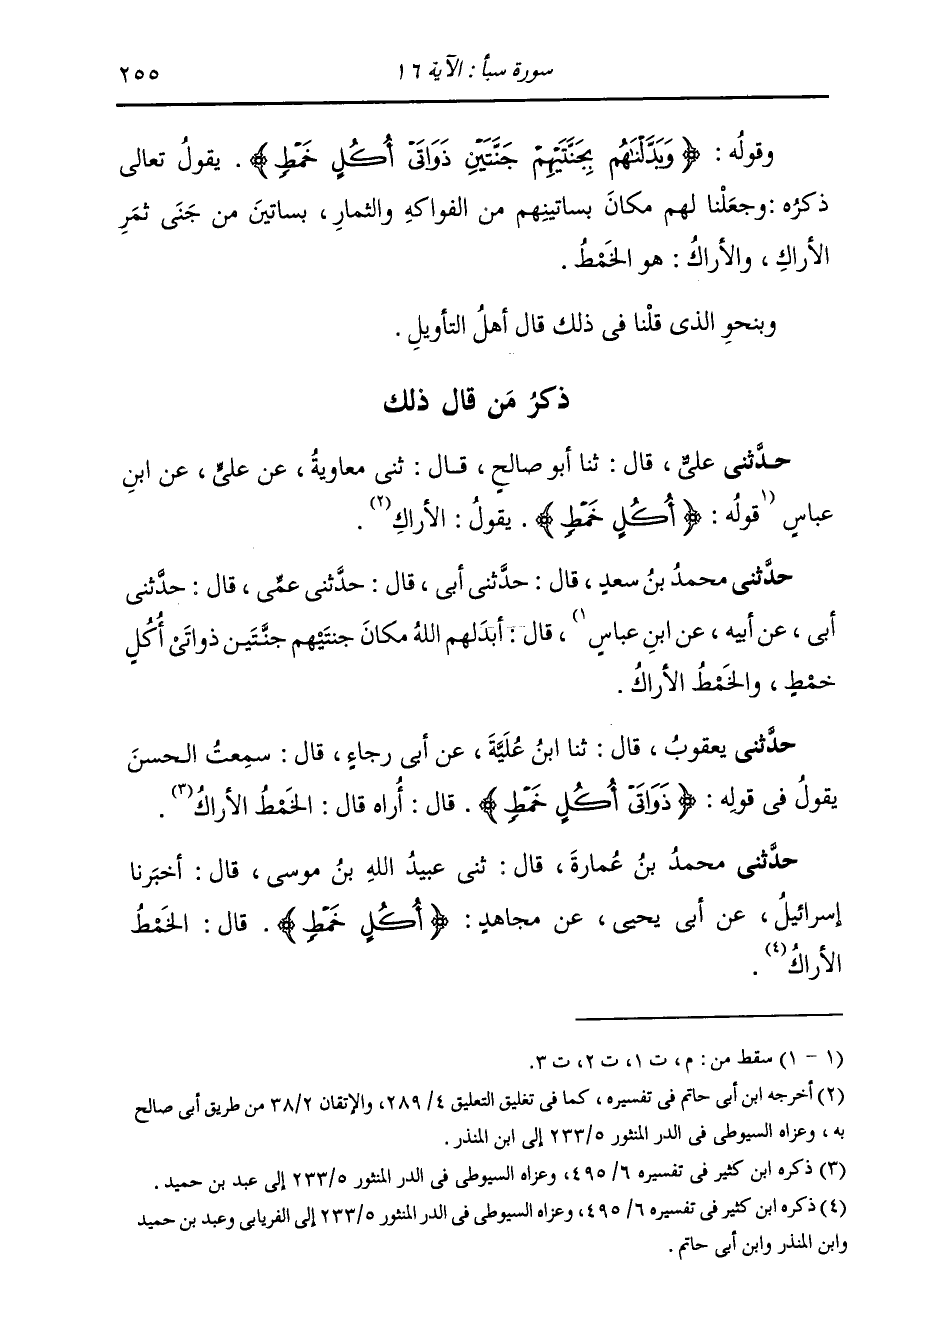 سورة سبأ : الآية ١٦
٢٥٥
وقولُه : ﴿ وَبَدَّلْنَٰهُم بِجَنَّتَيْهِمْ جَنَّتَيْنِ ذَوَاتَىْ أُكُلٍ خَمْطٍ ﴾ . يقولُ تعالى
ذكرُه :وجعَلْنا لهم مكانَ بساتينِهم من الفواكهِ والثمارِ ، بساتينَ من جَنَى ثمَرِ
الأراكِ ، والأراكُ : هو الخَمْطُ .
وبنحوِ الذى قلْنا فى ذلك قال أهلُ التأويلِ .
ذكرُ مَن قال ذلك
حدَّثنى علىٌّ ، قال : ثنا أبو صالحٍ ، قال : ثنى معاويةُ ، عن علىٍّ ، عن ابنِ
عباسٍ (١قولُه : ﴿ أُكُلٍ خَمْطٍ ﴾ . يقولُ : الأراكِ(٢) .
حدَّثنى محمدُ بنُ سعدٍ ، قال : حدَّثنى أبى ، قال : حدَّثنى عمِّى ، قال : حدَّثنى
أبى ، عن أبيه ، عن ابنِ عباسٍ ١) ، قال : أبدَلهم اللهُ مكانَ جنتَيْهم جنَّتَين ذواتَىْ أُكُلٍ
خمْطٍ ، والخَمْطُ الأراكُ .
حدَّثنى يعقوبُ ، قال : ثنا ابنُ عُلَيَّةَ ، عن أبى رجاءٍ ، قال : سمِعتُ الحسنَ
يقولُ فى قولِه : ﴿ ذَوَاتَىْ أُكُلٍ خَمْطٍ ﴾ . قال : أُراه قال : الخَمْطُ الأراكُ(٣) .
حدَّثنى محمدُ بنُ عُمارةَ ، قال : ثنى عبيدُ اللهِ بنُ موسى ، قال : أخبَرنا
إسرائيلُ ، عن أبى يحيى ، عن مجاهدٍ : ﴿ أُكُلٍ خَمْطٍ ﴾ . قال : الخَمْطُ
الأراكُ(٤) .
(١ - ١) سقط من : م ، ت ١، ت ٢، ت ٣.
(٢) أخرجه ابن أبى حاتم فى تفسيره ، كما فى تغليق التعليق ٤/ ٢٨٩، والإتقان ٣٨/٢ من طريق أبى صالح
به ، وعزاه السيوطى فى الدر المنثور ٢٣٣/٥ إلى ابن المنذر .
(٣) ذكره ابن كثير فى تفسيره ٦/ ٤٩٥، وعزاه السيوطى فى الدر المنثور ٢٣٣/٥ إلى عبد بن حميد .
(٤) ذكره ابن كثير فى تفسيره ٦/ ٤٩٥، وعزاه السيوطى فى الدر المنثور ٢٣٣/٥ إلى الفريابى وعبد بن حميد
وابن المنذر وابن أبى حاتم .